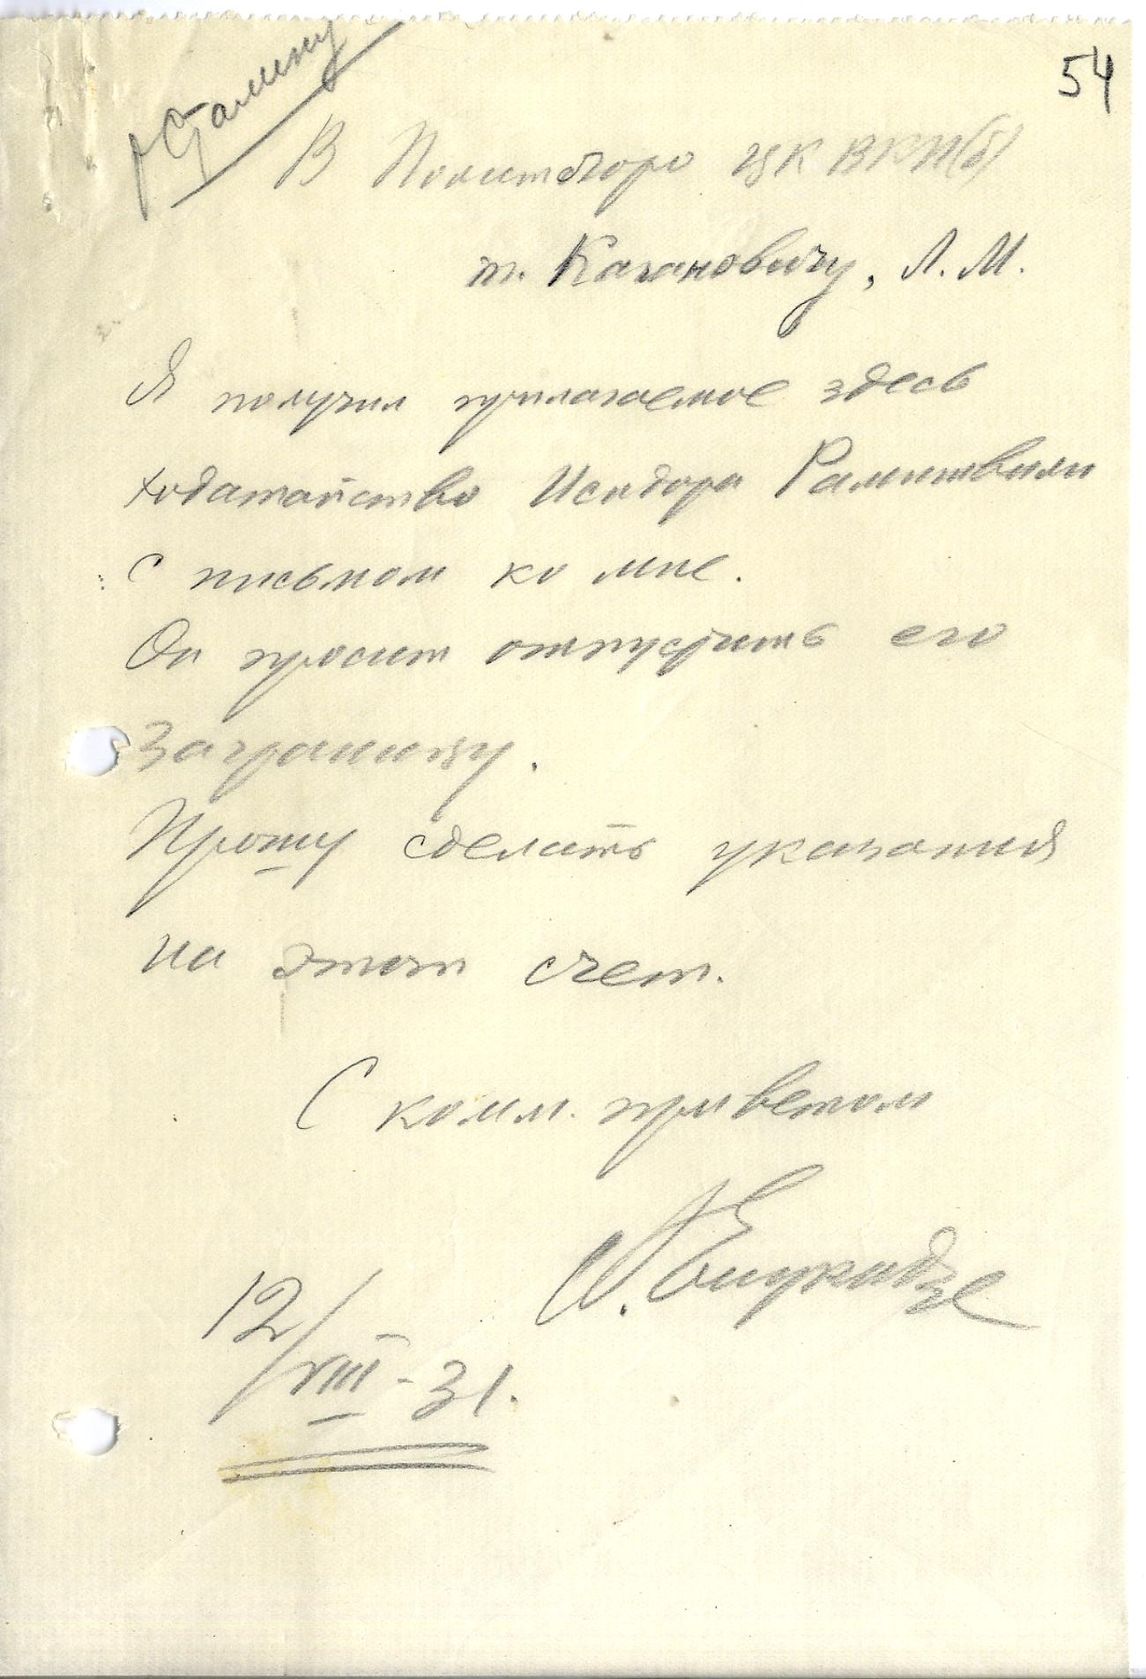 54
Сталину
В Политбюро ЦК ВКП(б)
т. Кагановичу, Л.М.
Я получил прилагаемое здесь
ходатайство Исидора Рамишвили
с письмом ко мне.
Он просит отпустить его
заграницу.
Прошу сделать указания
на этот счет.
С комм. приветом
А. Енукидзе
12/VIII-31.